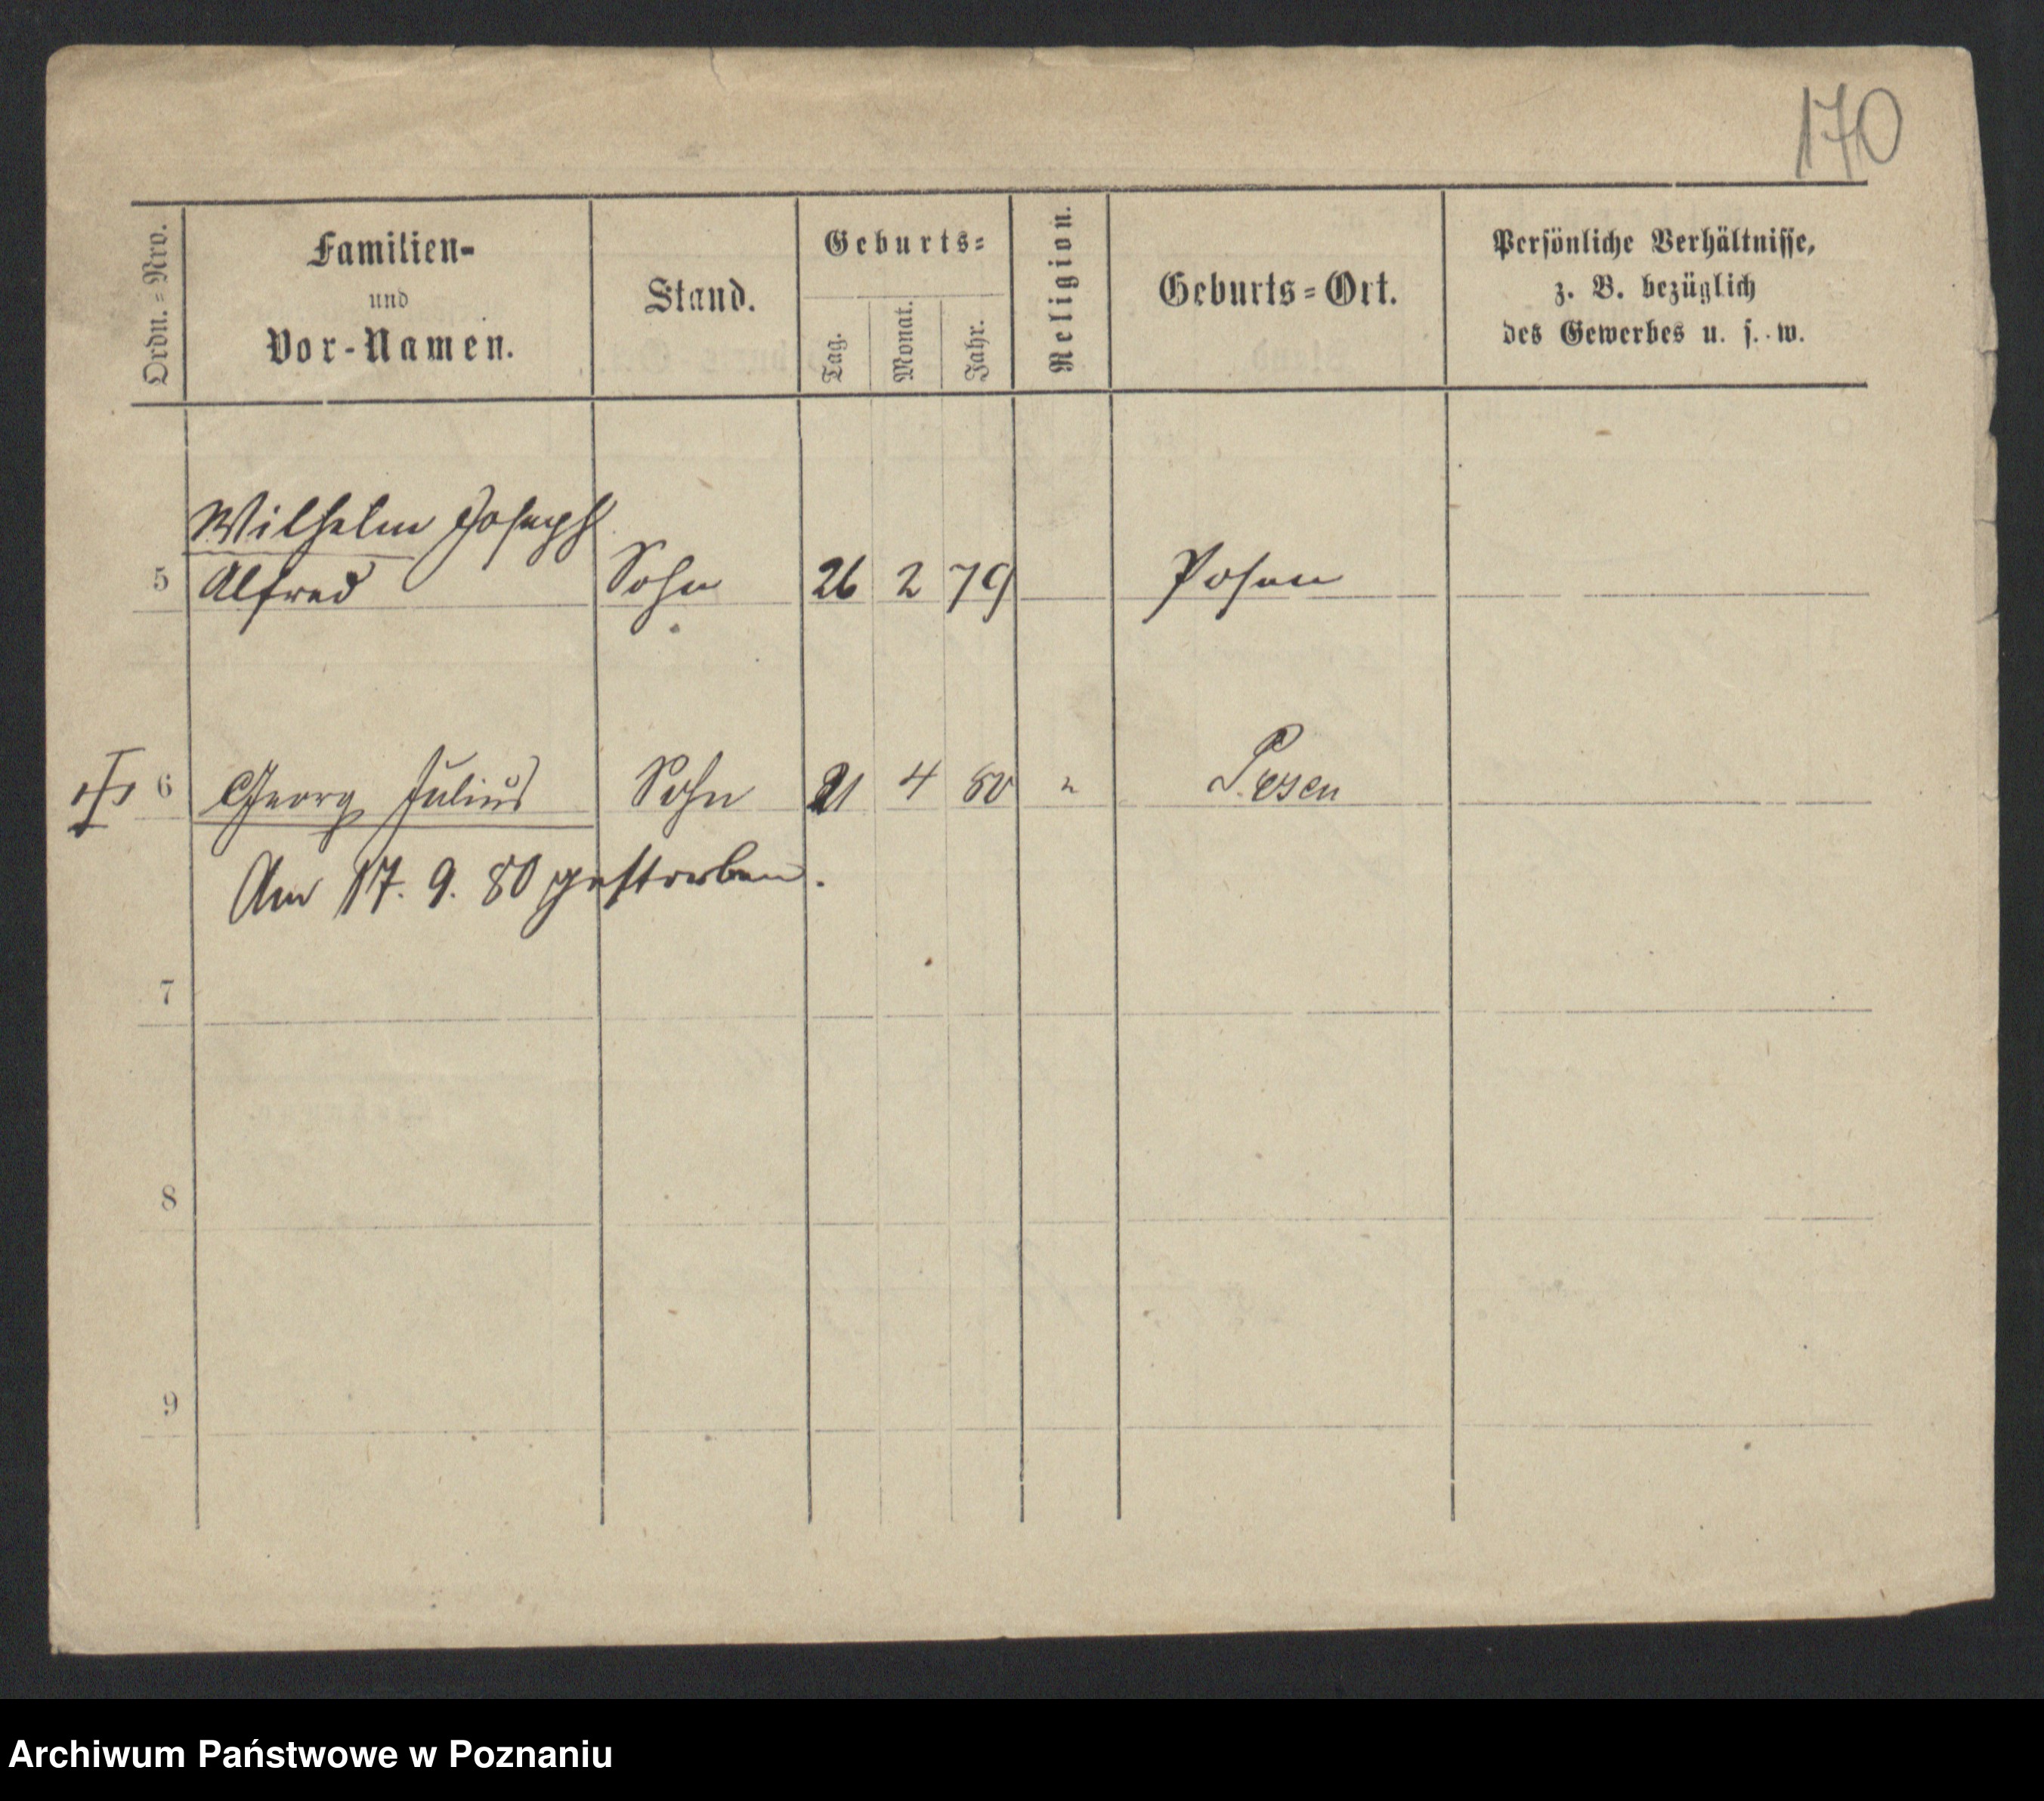 170
Ordn.=Nro.
Familien-
und
Vor-Namen.
Stand.
Geburts=
Tag.
Monat.
Jahr.
Religion.
Geburts=Ort.
Persönliche Verhältnisse,
z. B. bezüglich
des Gewerbes u. s. w.
Wilhelm Joseph
5 Alfred Sohn 26 2 79 Posen
6 Georg Julius Sohn 21 4 80 " Posen
Am 17. 9. 80 gestorben.
7
8
9
Archiwum Państwowe w Poznaniu